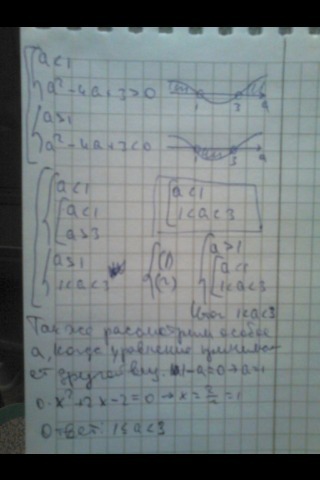 a<1
a²-4a+3>0
1 3 a
a≥1
a²-4a+3<0
1 3 a
a<1
a<1
a>3
a≥1
1<a<3
a<1
1<a<3
(1)
(2)
a>1
a<1
1<a<3
Итог 1<a<3
Также рассмотрим особое
a, когда уравнение принима-
ет другой вид. 1-a=0→a=1
0·x²+2x-2=0→x=2/2=1
Ответ: 1≤a<3